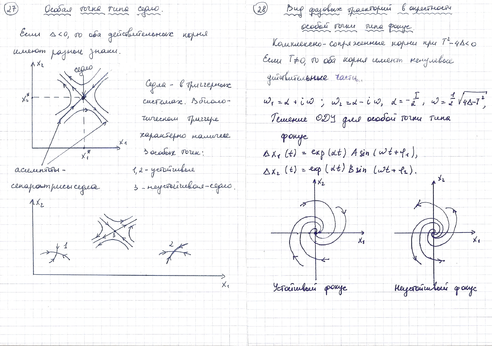 27
Особая точка типа седло.
Если Δ<0, то оба действительных корня
имеют разные знаки.
x₂
седло
x₂*
x₁*
x₁
Седла - в триггерных
системах. В биоло-
гическом триггере
характерно наличие
3 особых точек:
1,2 - устойчивые
3 - неустойчивая - седло.
асимптоты -
сепаратрисы седла
x₂
1
3
2
x₁
28
Вид фазовых траекторий в окрестности
особой точки типа фокус.
Комплексно-сопряженные корни при T²-4Δ<0
Если T≠0, то оба корня имеют ненулевые
действительные части.
ω₁ = α + iω ; ω₂ = α - iω, α = -T/2, ω = 1/2 √4Δ-T²,
Решение ОДУ для особой точки типа
фокус
Δx₁(t) = exp(αt) A sin(ωt+φ₁),
Δx₂(t) = exp(αt) B sin(ωt+φ₂).
x₂
x₁
x₂
x₁
Устойчивый фокус
Неустойчивый фокус